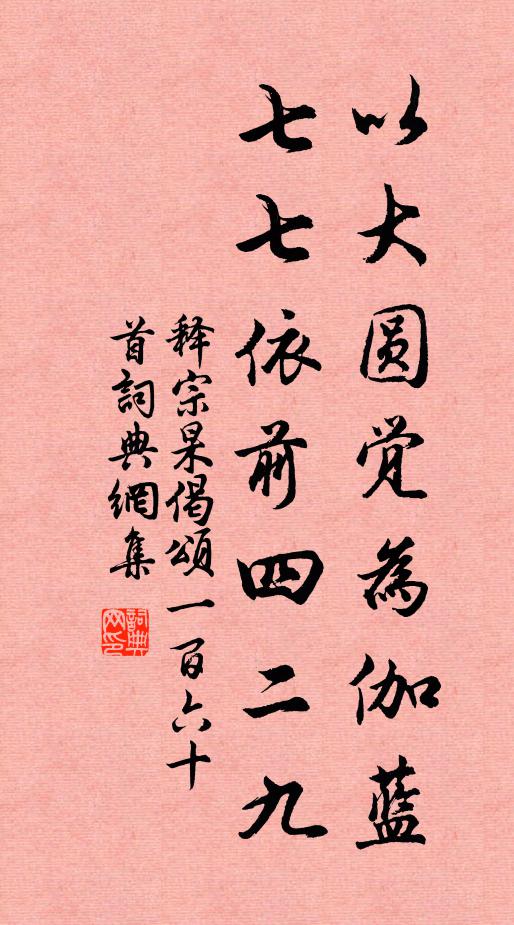 以大圆觉為伽藍
七七依前四二九
释宗杲偈頌一百六十
首詞典網集
詞典
网印